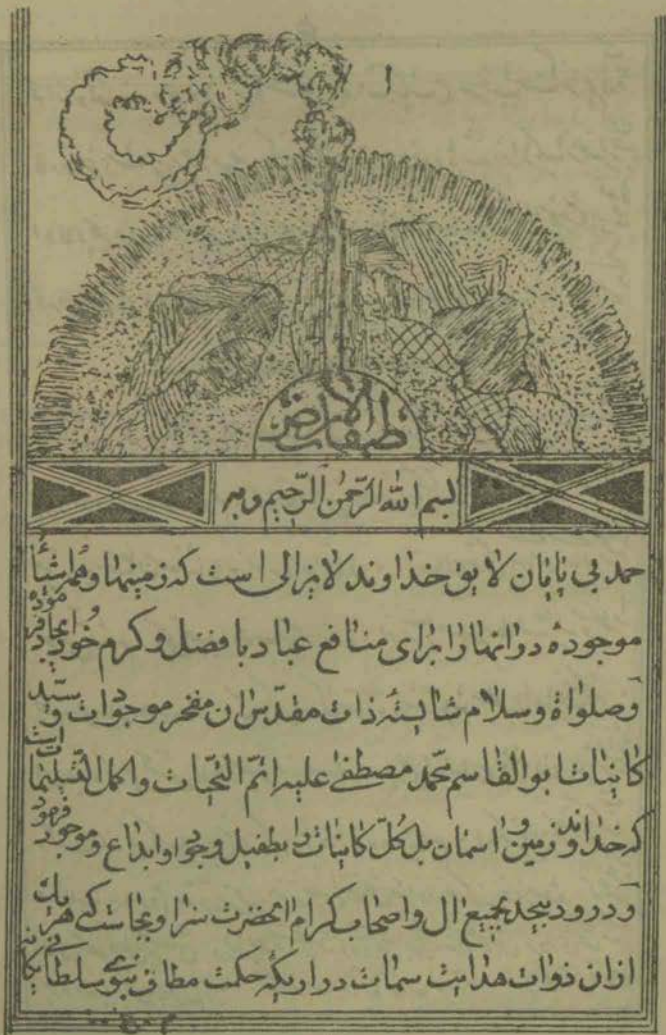 ١
طبقات الارض
بسم الله الرحمن الرحیم وبه
حمد بی پایان لایق خداوند لایزالی است که زمینها و هم اشیأ
موجودهٔ درانها را برای منافع عباد با فضل و کرم خود ایجاد فرموده
وصلواة وسلام شایستهٔ ذات مقدس ان مفخر موجودات و سید
کاینات ابوالقاسم محمد مصطفی علیه اتم التحیات واکمل التسلیمات است
که خداوند زمین و اسمان بل کل کاینات را بطفیل وجود او ابداع وموجود فرمود
ودرود بیحد بجمیع ال واصحاب کرام انحضرت سزاوار بجاست که هر یک
ازان ذوات هدایت سمات در اریکهٔ حکمت مطاف نبوی سلطان